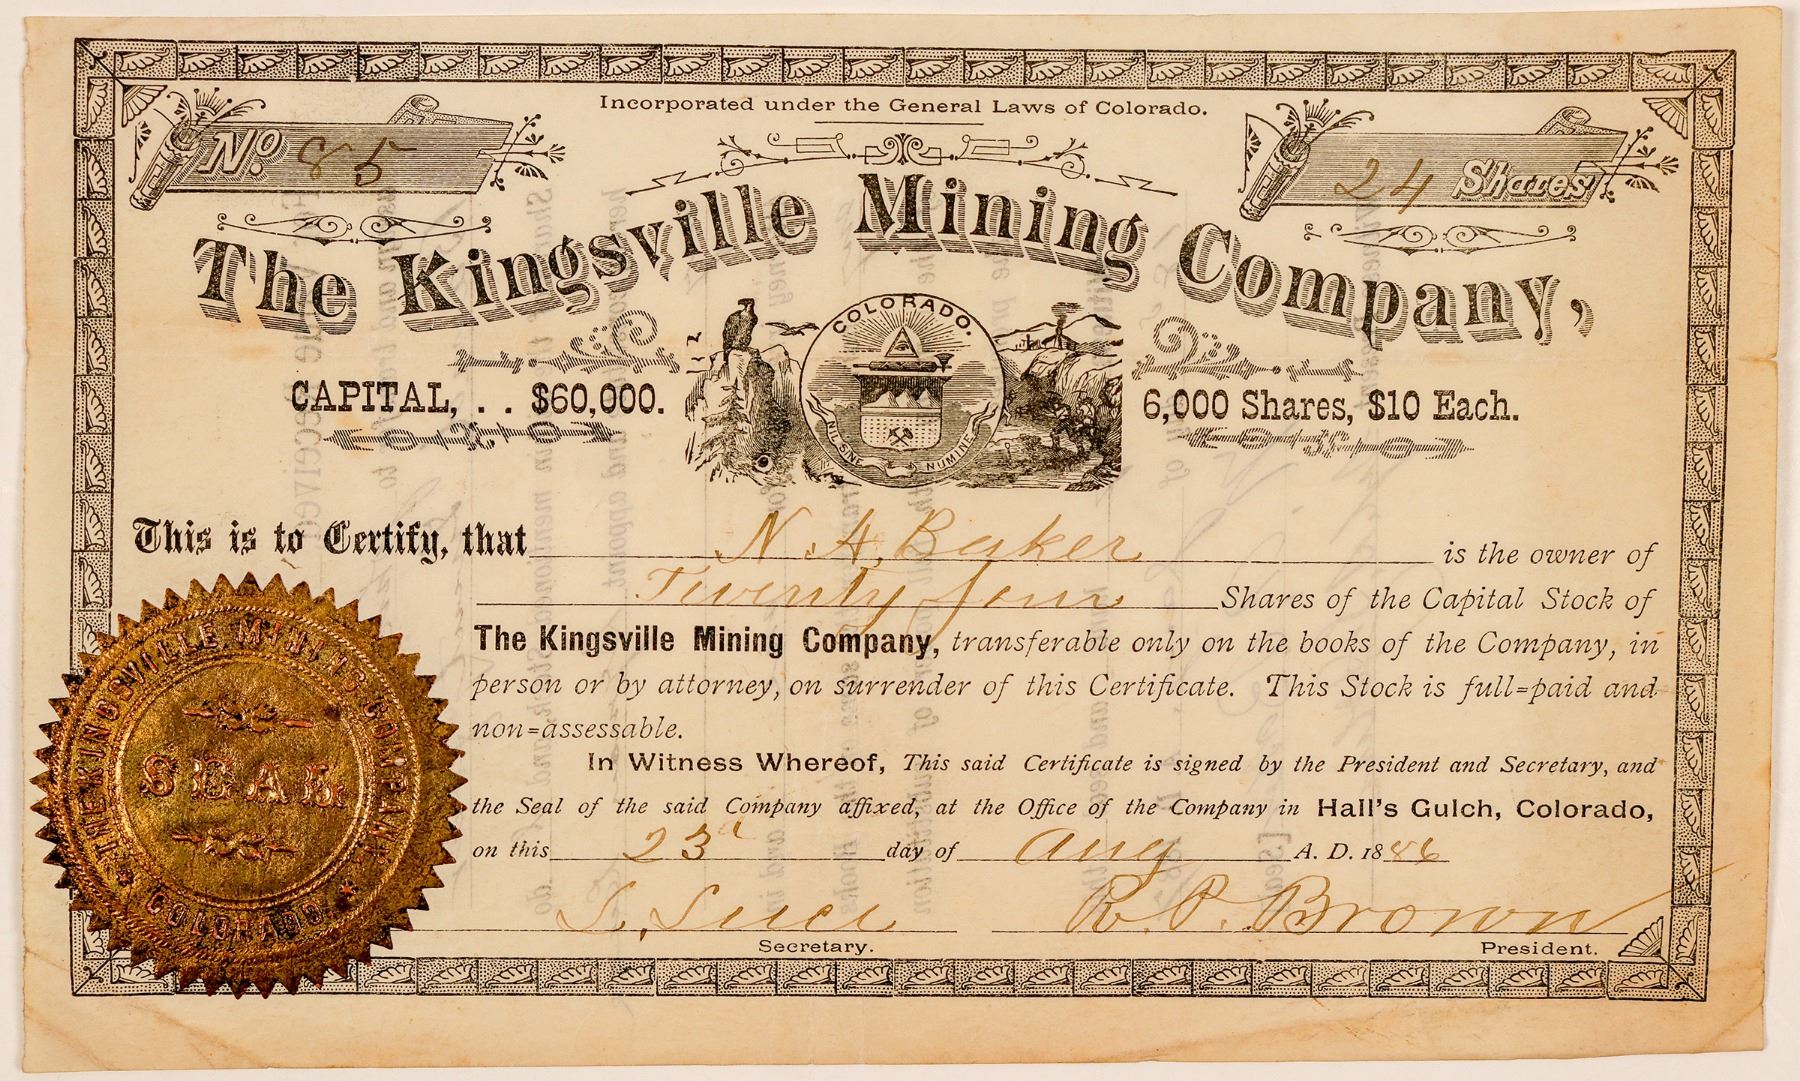 Incorporated under the General Laws of Colorado.
No. 85
24 Shares
The Kingsville Mining Company,
COLORADO.
NIL SINE NUMINE
CAPITAL, . . $60,000.
6,000 Shares, $10 Each.
This is to Certify, that N. A. Baker is the owner of
Twenty four Shares of the Capital Stock of
The Kingsville Mining Company, transferable only on the books of the Company, in
person or by attorney, on surrender of this Certificate. This Stock is full=paid and
non=assessable.
In Witness Whereof, This said Certificate is signed by the President and Secretary, and
the Seal of the said Company affixed, at the Office of the Company in Hall's Gulch, Colorado,
on this 23d day of Aug A. D. 1886
THE KINGSVILLE MINING COMPANY
SEAL
COLORADO
R. P. Brown
Secretary.
President.